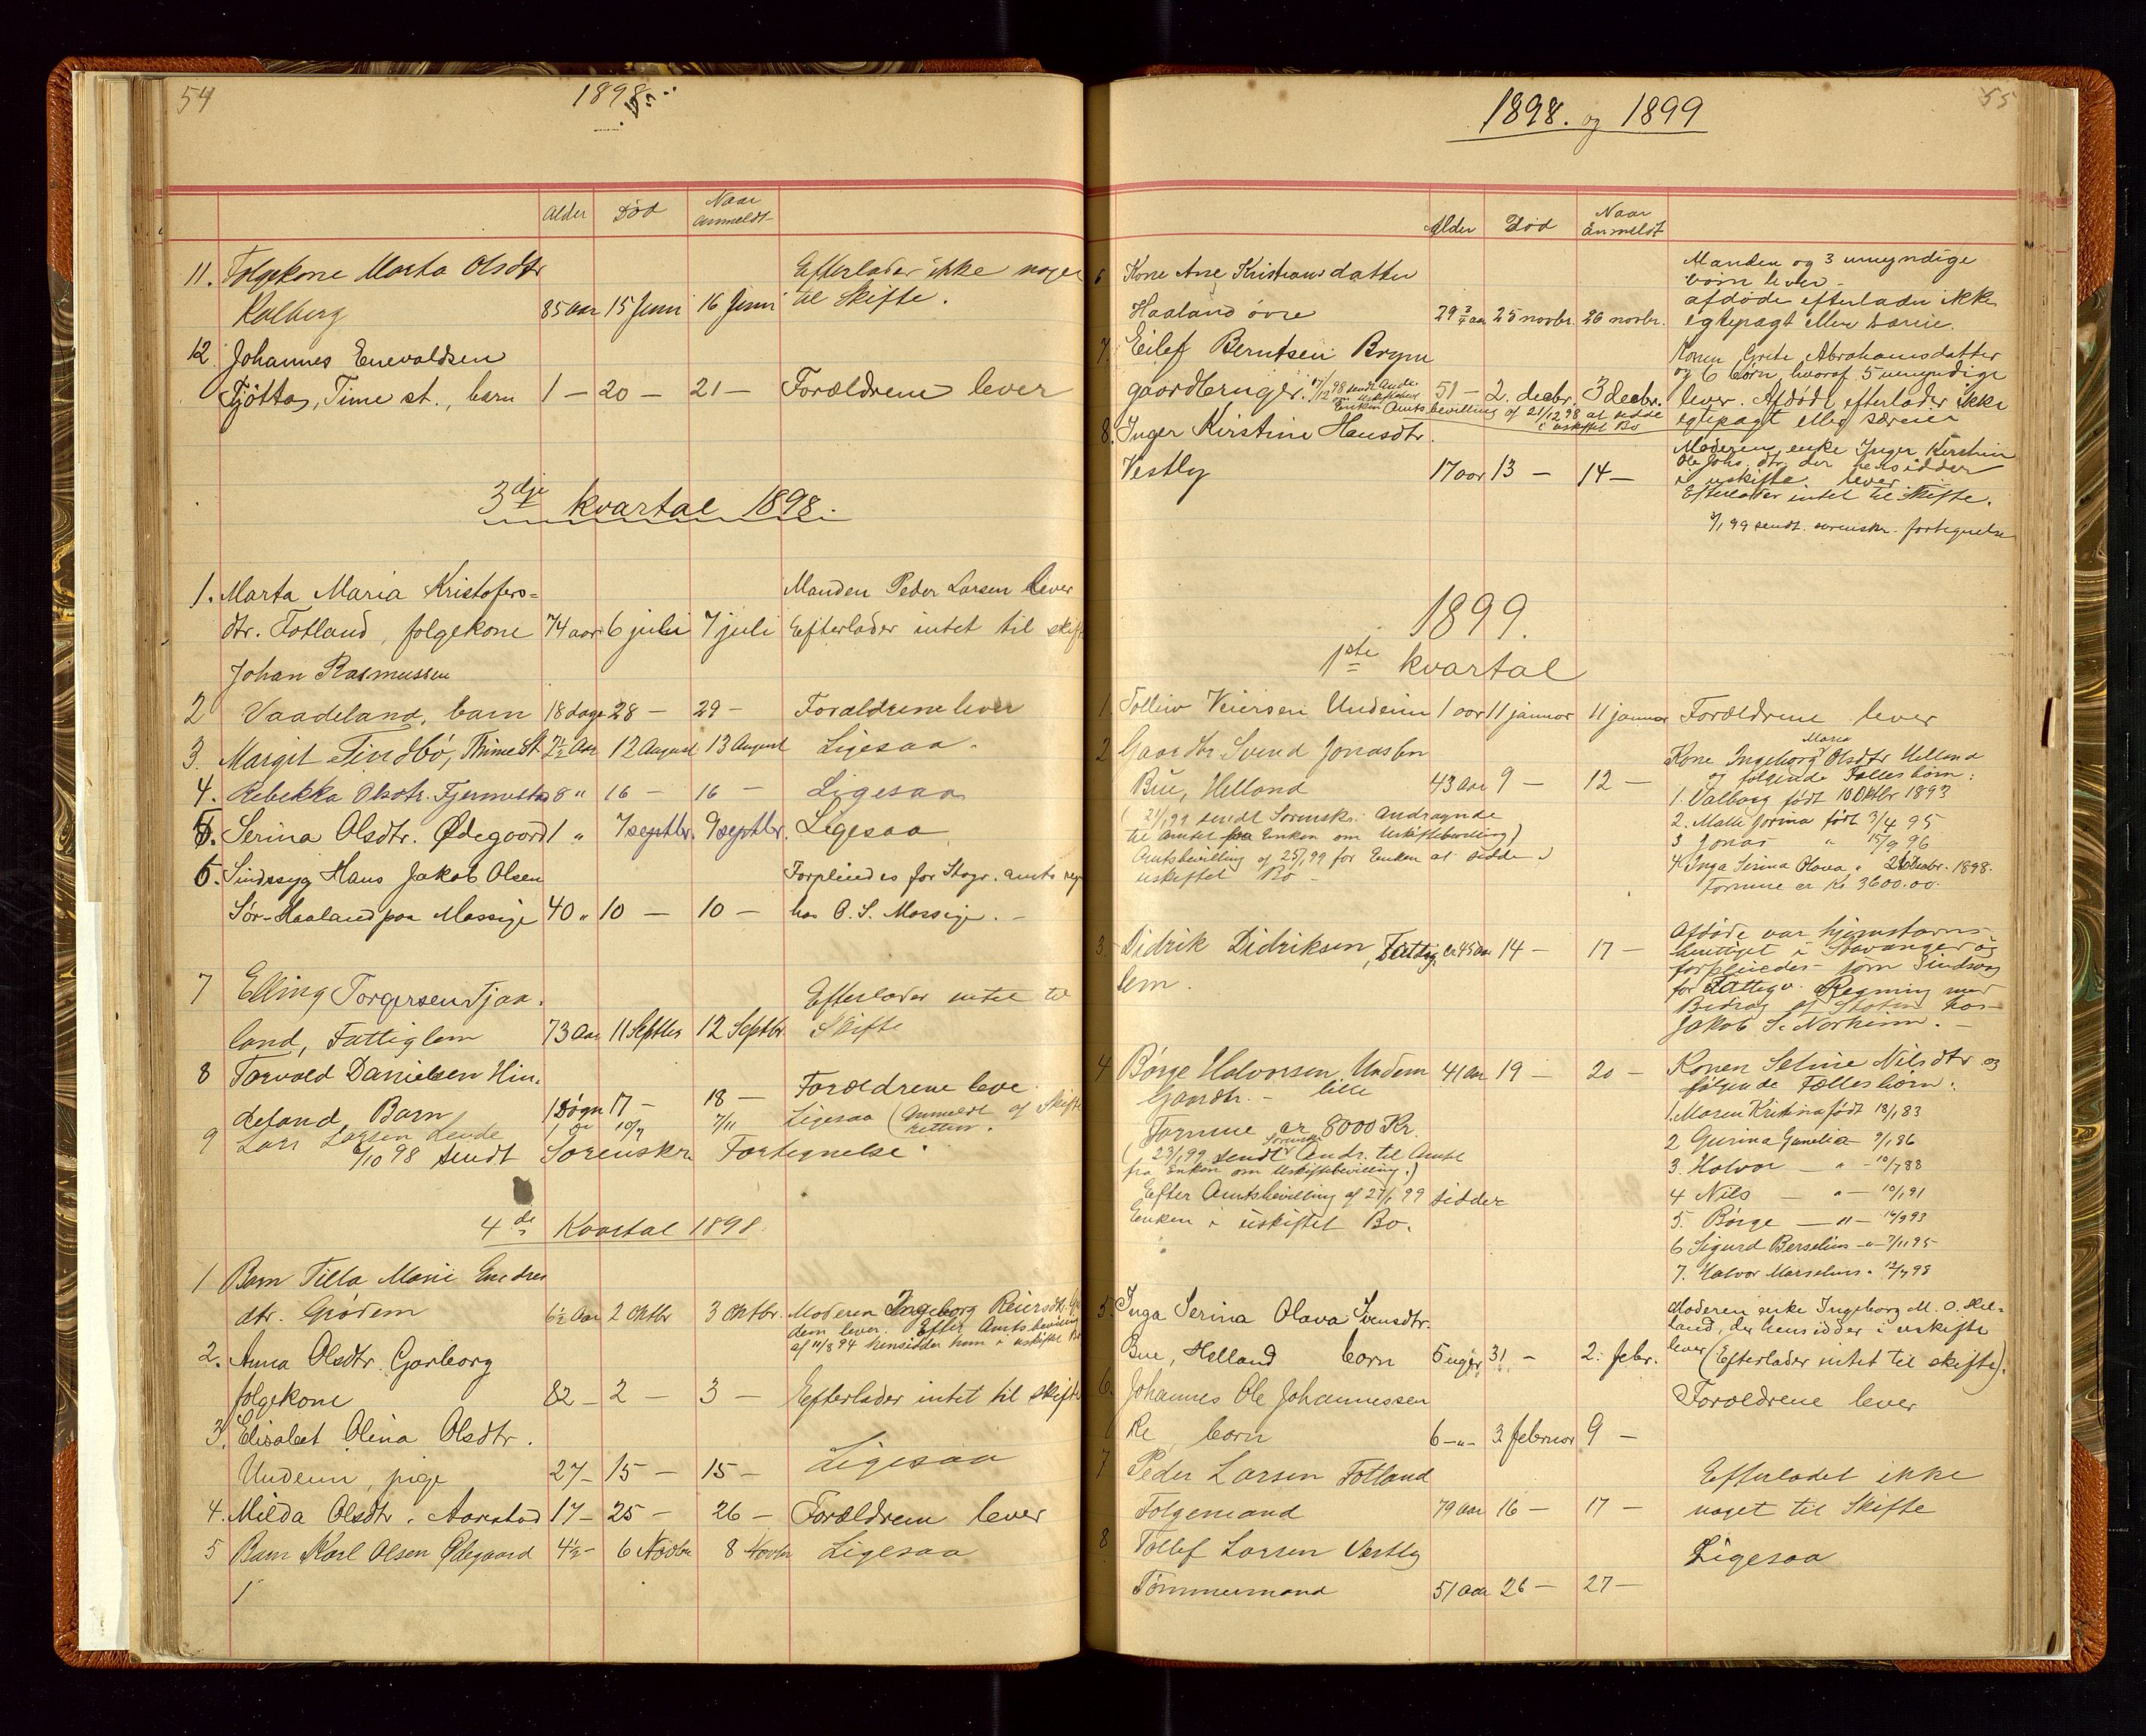 54
1898
Alder Død Naar anmeldt
11. Folgekone Marta Olsdtr Efterlader ikke noget
Kalberg 85 aar 15 Juni 16 Juni til Skifte.
12 Johannes Enevaldsen
Fjöttas, Time st., barn 1 — 20 — 21 — Forældrene lever
3dje kvartal 1898.
1. Marta Maria Kristofers= Manden Peder Larsen lever
dtr. Fotland, folgekone 74 aar 6 juli 7 juli Efterlader intet til skifte
Johan Rasmussen
2 Vaadeland, barn 18 dage 28 — 29 — Forældrene lever
3. Margit Tindbö, Thime St 2½ Aar 12 August 13 August Ligesaa.
4. Rebekka Olsdtr. 8 " 16 — 16 — Ligesaa
5. Serina Olsdtr. Ødegaard 1 " 7 septbr. 9 septbr. Ligesaa
6. Sindssyg Hans Jakob Olsen Forpleiedes for Stvgr. amts regn
Sör-Haaland paa Mossige 40 " 10 — 10 — hos O. S. Mossige. —
7 Elling Torgersen Tjaa. Efterlader intet til
land, Fattiglem 73 Aar 11 Septbr 12 Septbr Skifte
8 Torvald Danielsen Hin. Forældrene leve
deland, Barn 1 Døgn 17 — 18 —
9 Lars Larsen Lende 1 Aar 10/9 7/11 Ligesaa (Anmeldt af Skifte retten.
6/10 98 sendt Sorenskr. Fortegnelse.
4de Kvartal 1898.
1 Barn Tilla Marie Endres
dtr. Grödem 6½ Aar 2 Oktbr 3 Oktbr. Moderen Ingeborg Reiersdtr. Grö
dem lever. Efter Amtsbevilling
af 11/8 94 hensidder hun i uskiftet Bo
2. Anna Olsdtr. Garborg
folgekone 82 — 2 — 3 — Efterlader intet til skifte
3. Elisabet Olina Olsdtr.
Undeim, pige 27 — 15 — 15 — Ligesaa
4. Milda Olsdtr. Aarestad 17 — 25 — 26 — Forældrene lever
5 Barn Karl Olsen Ødegaard 4½ — 6 Novbr 8 Novbr Ligesaa
55
1898. og 1899
Alder Död Naar Anmeldt
6 Kone Ane Kristiansdatter Manden og 3 umyndige
börn lever —
Haaland övre 29 3/4 aar 25 novbr. 26 novbr. afdöde efterlader ikke
egtepagt eller særeie.
7. Eilef Berntsen Bryne Konen Grete Abrahamsdatter
og 6 börn, hvoraf 5 umyndige
gaardbruger. 51 — 2. decbr. 3 decbr. lever. Afdöde efterlader ikke
17/12 98 sendt Andr. om uskiftetbev.
Enken Amtsbevilling af 21/12 98 at sidde i uskiftet Bo
egtepagt eller særeie
8. Inger Kirstine Hansdtr. Moderen, enke Inger Kirstine
Vestly 17 aar 13 — 14 — Ole Johs. dtr. der hensidder
i uskifte, lever
Efterlader intet til Skifte.
3/1 99 sendt sorenskr. fortegnelse
1899.
1ste kvartal
1. Tolleiv Veiersen Undeim 1 aar 11 januar 11 januar Forældrene lever
2 Gaardbr. Svend Jonassen Kone Ingeborg Maria Olsdtr Helland
og følgende Fælles börn:
Bue, Helland 43 Aar 9 — 12 — 1. Valborg födt 10 Oktbr 1893
(21/1 99 sendt Sorenskr. Andragende 2. Malli Jorina födt 3/4 95
til Amtet fra Enken om Uskiftebevilling) 3 Jonas " 15/9 96
Amtsbevilling af 25/1 99 for Enken at sidde i 4. Inga Serina Olava " 26 Decbr. 1898.
uskiftet Bo — Formue er Kr. 3600.00.
3 Didrik Didriksen, Fattig ca 45 Aar 14 — 17 — Afdöde var hjemstavns
lem. berettiget i Stavanger og
forpleiedes som Sindssyg
for Fattigv. Regning med
Bidrag af Staten hos
Jakob S. Norheim. —
4 Börge Halvorsen, Undem 41 Aar 19 — 20 — Konen Seline Nilsdtr og
Gaardbr. — lille fölgende Fælles börn:
Formue er 8000 Kr. 1. Maren Kristina födt 18/1 83
(23/1 99 sendt Sorenskr. Andr. til Amtet 2 Gurina Gunelia — 9/1 86
fra Enken om Uskiftebevilling.) 3. Halvor — " — 10/7 88
Efter Amtsbevilling af 27/1 99 sidder 4 Nils — " — 10/1 91
Enken i uskiftet Bo. 5. Börge — " — 14/9 93
6 Sigurd Berselius — " — 7/11 95
7. Halvor Marselius " 12/7 98
5. Inga Serina Olava Svensdtr. Moderen enke Ingeborg M. O. Hel-
land, der hensidder i uskifte
Bue, Helland barn 5 uger 31. — 2. febr. lever (Efterlader intet til skifte).
6. Johannes Ole Johannessen Forældrene lever
Re barn 6 — " — 3 februar 9 —
7 Peder Larsen Fotland Efterladet ikke
Folgemand 79 aar 16 — 17 — noget til Skifte
8 Tollef Larsen Vestly Ligesaa
Tömmermand 51 Aar 26 — 27 —